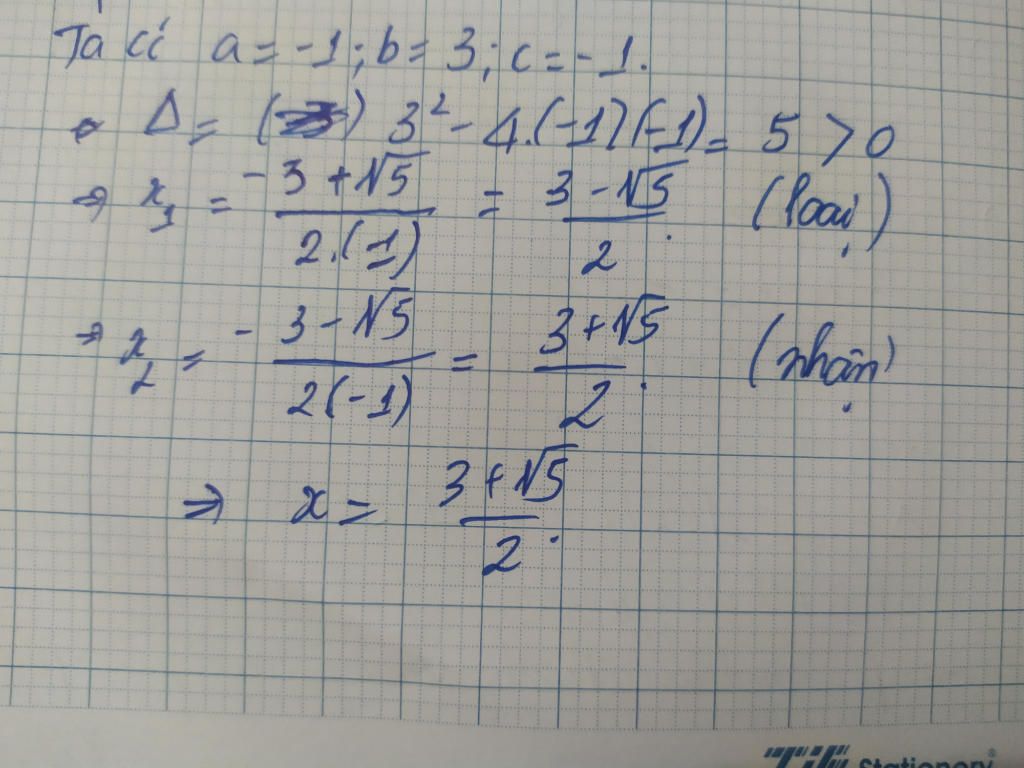 Ta có a = -1 ; b = 3 ; c = -1.
Δ = ( ) 3² - 4.(-1)(-1) = 5 > 0
⇒ x₁ = (-3 + √5)/(2.(-1)) = (3 - √5)/2. (loại)
⇒ x₂ = (-3 - √5)/(2(-1)) = (3 + √5)/2. (nhận)
⇒ x = (3 + √5)/2.
Stationery